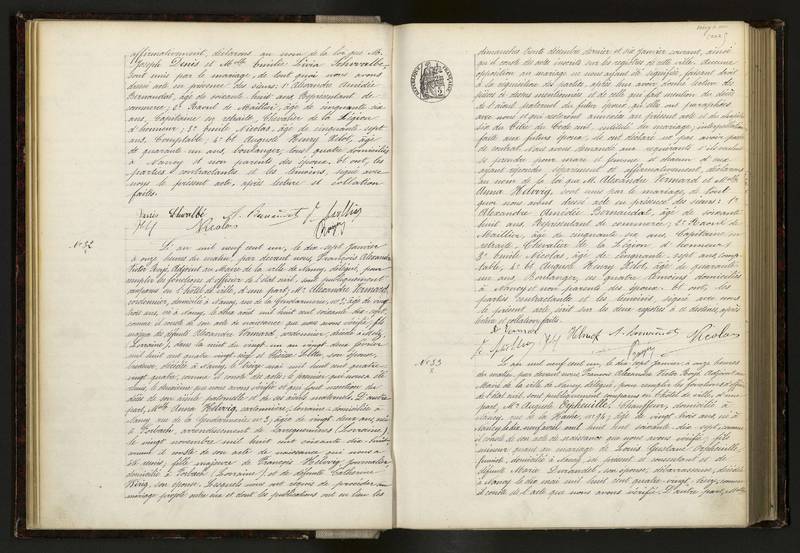 affirmativement, déclarons au nom de la loi que M.
Joseph Denis et Melle Emilie Livia Schwalbé,
sont unis par le mariage, de tout quoi nous avons
dressé acte en présence des sieurs: 1° Alexandre Amédée
Bernardat, âgé de soixante huit ans, Représentant de
commerce; 2° Raoul de Maillier, âgé de cinquante six
ans, Capitaine en retraite, Chevalier de la Légion
d'honneur; 3° Emile Nicolas, âgé de cinquante sept
ans, Comptable; 4° et Auguste Henry Hélot, âgé
de quarante un ans, boulanger, tous quatre domiciliés
à Nancy et non parents des époux. Et ont, les
parties contractantes et les témoins, signé avec
nous le présent acte, après lecture et collation
faites.
Denis Schwalbé
Nicolas
N° 32
L'an mil neuf cent un, le dix sept Janvier
à onze heures du matin, par devant nous, François Alexandre
Adjoint au Maire de la ville de Nancy, délégué, pour
remplir les fonctions d'officier de l'état civil, sont publiquement
comparus en l'hôtel de ville, d'une part, Mr Alexandre
cordonnier, domicilié à Nancy, rue de la Gendarmerie, n° 3, âgé de vingt
trois ans, né à Nancy, le deux août mil huit cent soixante dix sept,
comme il conste de son acte de naissance que nous avons vérifié; fils
majeur de défunt Alexandre cordonnier, décédé à
Lorraine), dans la nuit du vingt un au vingt deux février
mil huit cent quatre vingt neuf et Thérèse son épouse,
brodeuse, décédée à Nancy, le treize mai mil huit cent quatre
vingt quatre, comme il conste des actes; le premier qui nous a été
remis, le deuxième que nous avons vérifié et qui font mention du
décès de son aïeule paternelle et de ses aïeuls maternels. D'autre
part, Melle Anna Helvig, cartonnière, Lorraine, domiciliée à
Nancy rue de la Gendarmerie n° 3; âgée de vingt deux ans, née
à Forbach, arrondissement de Sarreguemines (Lorraine),
le vingt novembre mil huit cent soixante dix huit
comme il conste de son acte de naissance qui nous a
été remis; fille majeure de François Helvig, journalier
domicilié à Forbach (Lorraine) et de défunte Catherine
son épouse. Lesquels nous ont requis de procéder au
mariage projeté entre eux et dont les publications ont eu lieu les
dimanches trente décembre dernier et six janvier courant, ainsi
qu'il conste de acte inscrits sur les registres de cette ville. Aucune
opposition au mariage ne nous ayant été signifiée, faisant droit
à la réquisition des parties, après leur avoir donné lecture des
pièces ci dessus mentionnées et de celle qui fait mention du décès
de l'aïeul paternel du futur époux, qu'elles ont paraphées
avec nous et qui resteront annexées au présent acte et du chapitre
six du Titre du Code civil, intitulé du mariage; interpellation
faite aux futurs époux, ils ont déclaré ne pas avoir passé
de contrat. Nous avons demandé aux requérants s'ils veulent
se prendre pour mari et femme et chacun d'eux
ayant répondu séparément et affirmativement, déclarons
au nom de la loi que Mr Alexandre et Melle
Anna Helvig, sont unis par le mariage, de tout
quoi nous avons dressé acte en présence des sieurs: 1°
Alexandre Amédée Bernardat, âgé de soixante
huit ans, Représentant de commerce; 2° Raoul de
Maillier, âgé de cinquante six ans, Capitaine en
retraite, Chevalier de la Légion d'honneur;
3° Emile Nicolas, âgé de cinquante sept ans, Comp-
table; 4° et Auguste Henry Hélot, âgé de quarante
un ans, Boulanger, ces quatre témoins domiciliés
à Nancy et non parents des époux. Et ont, les
parties contractantes et les témoins, signé avec nous
le présent acte, écrit sur les deux registres à ce destinés, après
lecture et collation faites.
Nicolas
N° 33
L'an mil neuf cent un, le dix sept Janvier, à onze heures
du matin, par devant nous, François Alexandre Adjoint au
Maire de la ville de Nancy, délégué, pour remplir les fonctions d'officier
de l'état civil, sont publiquement comparus en l'hôtel de ville, d'une
part, Mr Auguste Chauffeur, domicilié à
Nancy, rue de la n° 98, âgé de vingt trois ans, né à
Nancy, le dix neuf août mil huit cent soixante dix sept, comme
il conste de son acte de naissance que nous avons vérifié; fils
mineur quant au mariage de Louis Gustave
domicilié à Nancy, ici présent et consentant et de
défunte Marie son épouse, décédée
à Nancy, le dix mai mil huit cent quatre vingt treize, comme
il conste de l'acte que nous avons vérifié. D'autre part, Melle